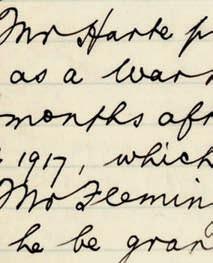 Mr Harte p
as a War
months af
1917, which
Mr Flemin
he be gran